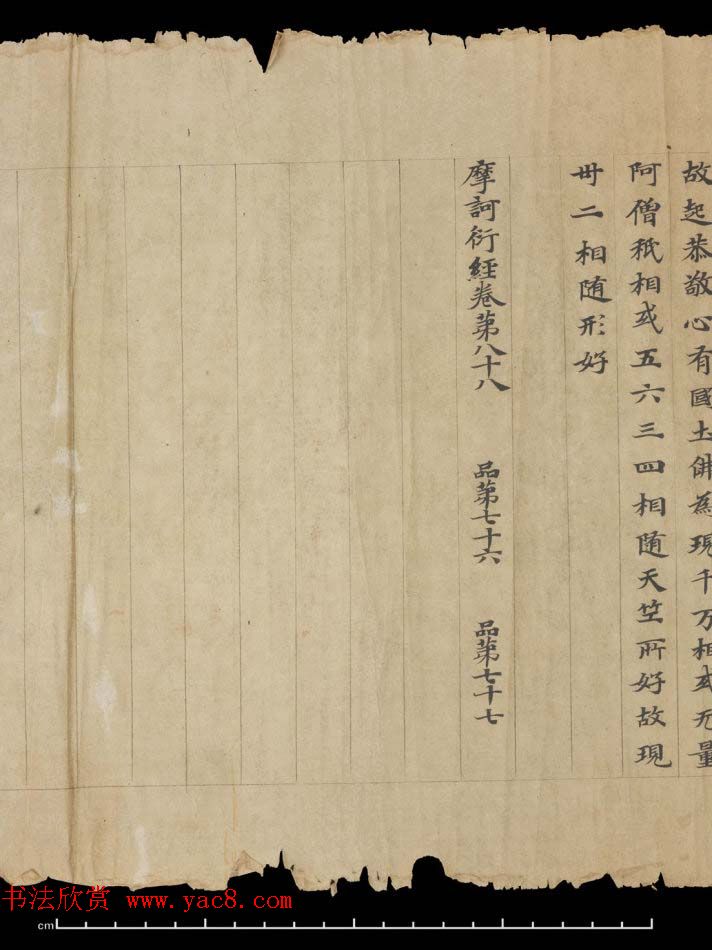 故起恭敬心有國土佛為現千万相或无量
阿僧秖相或五六三四相随天竺所好故現
丗二相随形好
摩訶衍經卷第八十八 品第七十六 品第七十七
书法欣赏 www.yac8.com
cm